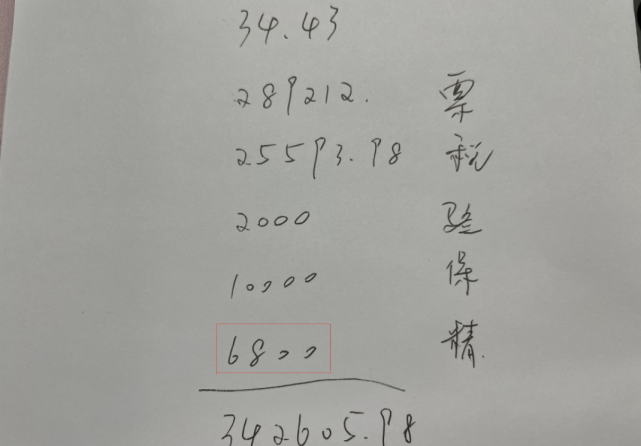 34.43
289212. 票
25593.98 税
2000 验
10000 保
6800 精.
342605.98